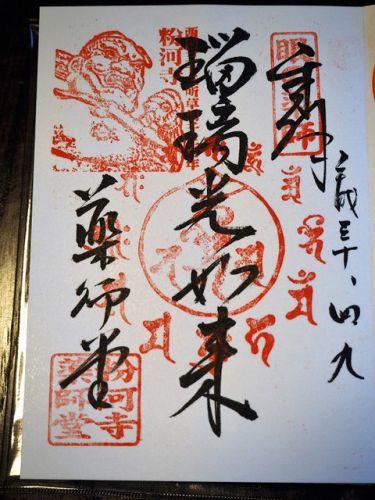 奉拝
平成三十、四、九
瑠璃光如来
薬師堂
粉河寺
粉河寺
薬師堂